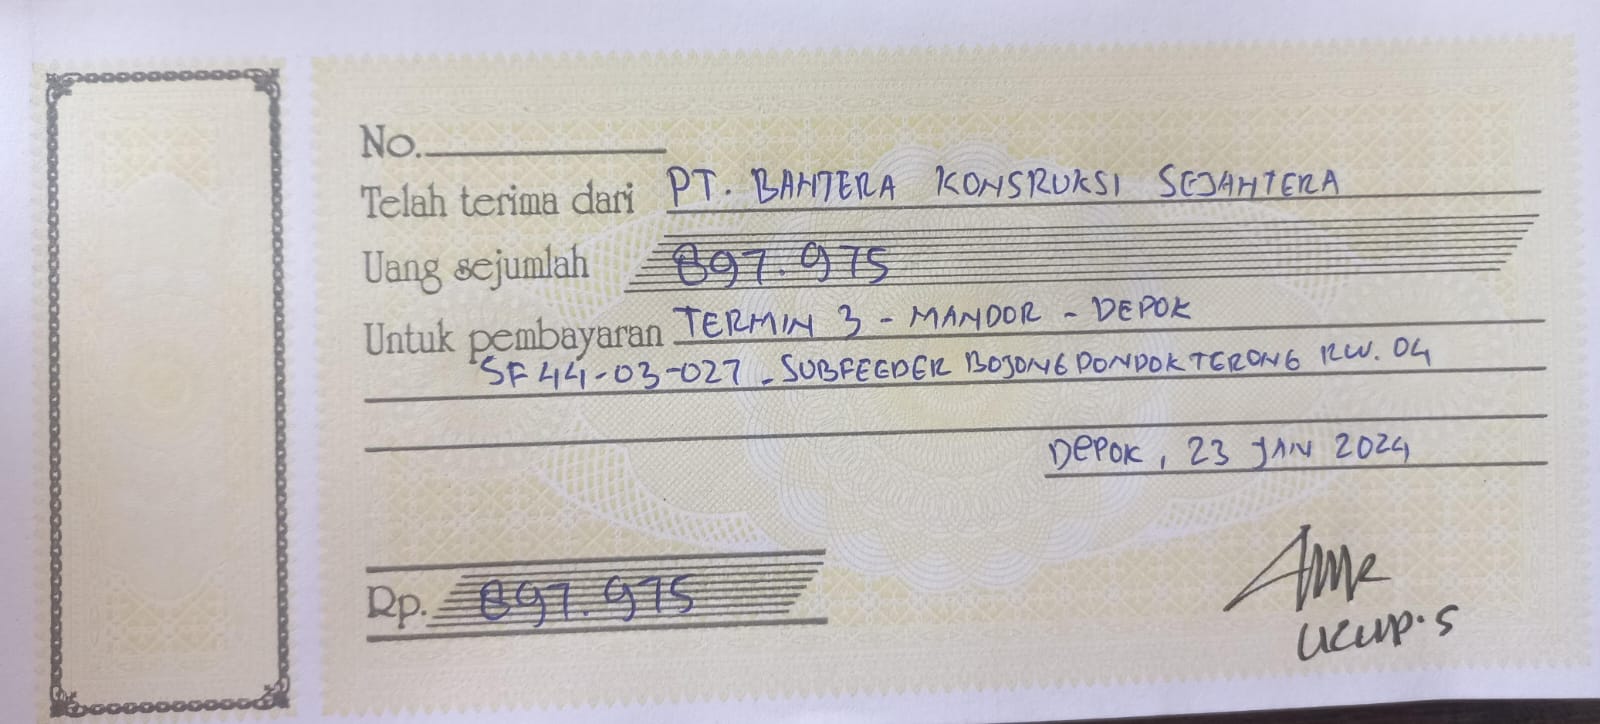 No.
Telah terima dari PT. BAHTERA KONSRUKSI SEJAHTERA
Uang sejumlah 897.975
Untuk pembayaran TERMIN 3 - MANDOR - DEPOK
SF 44-03-027 - SUBFEEDER BOJONG PONDOK TERONG RW. 04
DEPOK, 23 JAN 2024
Rp. 897.975
UCUP.S